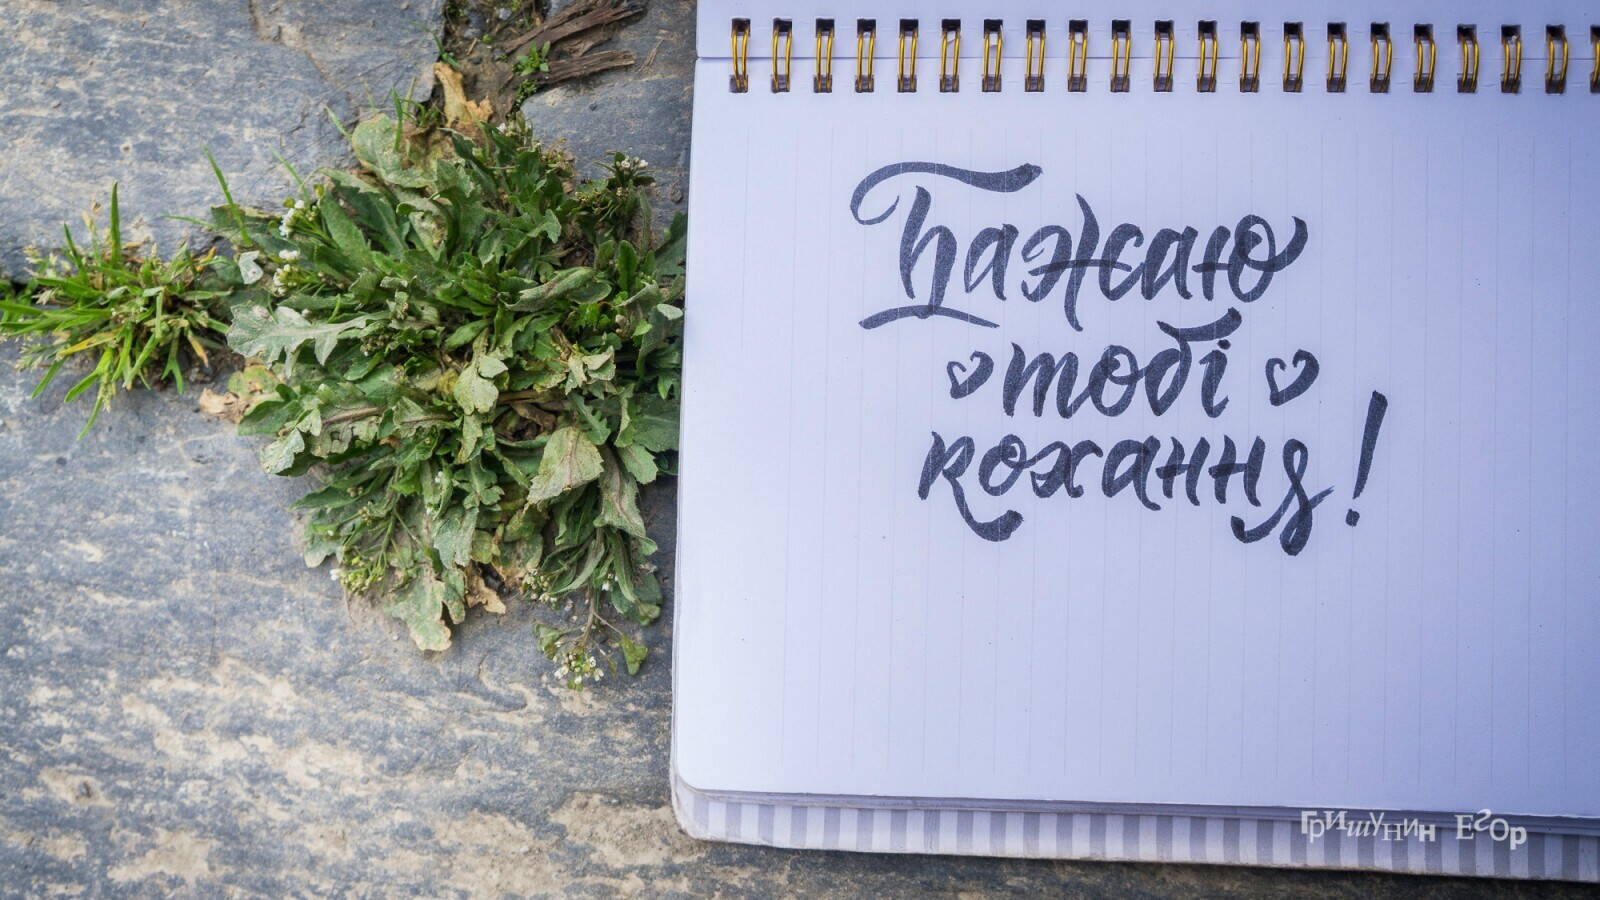 Бажаю
тобі
кохання!
Гришунин Егор